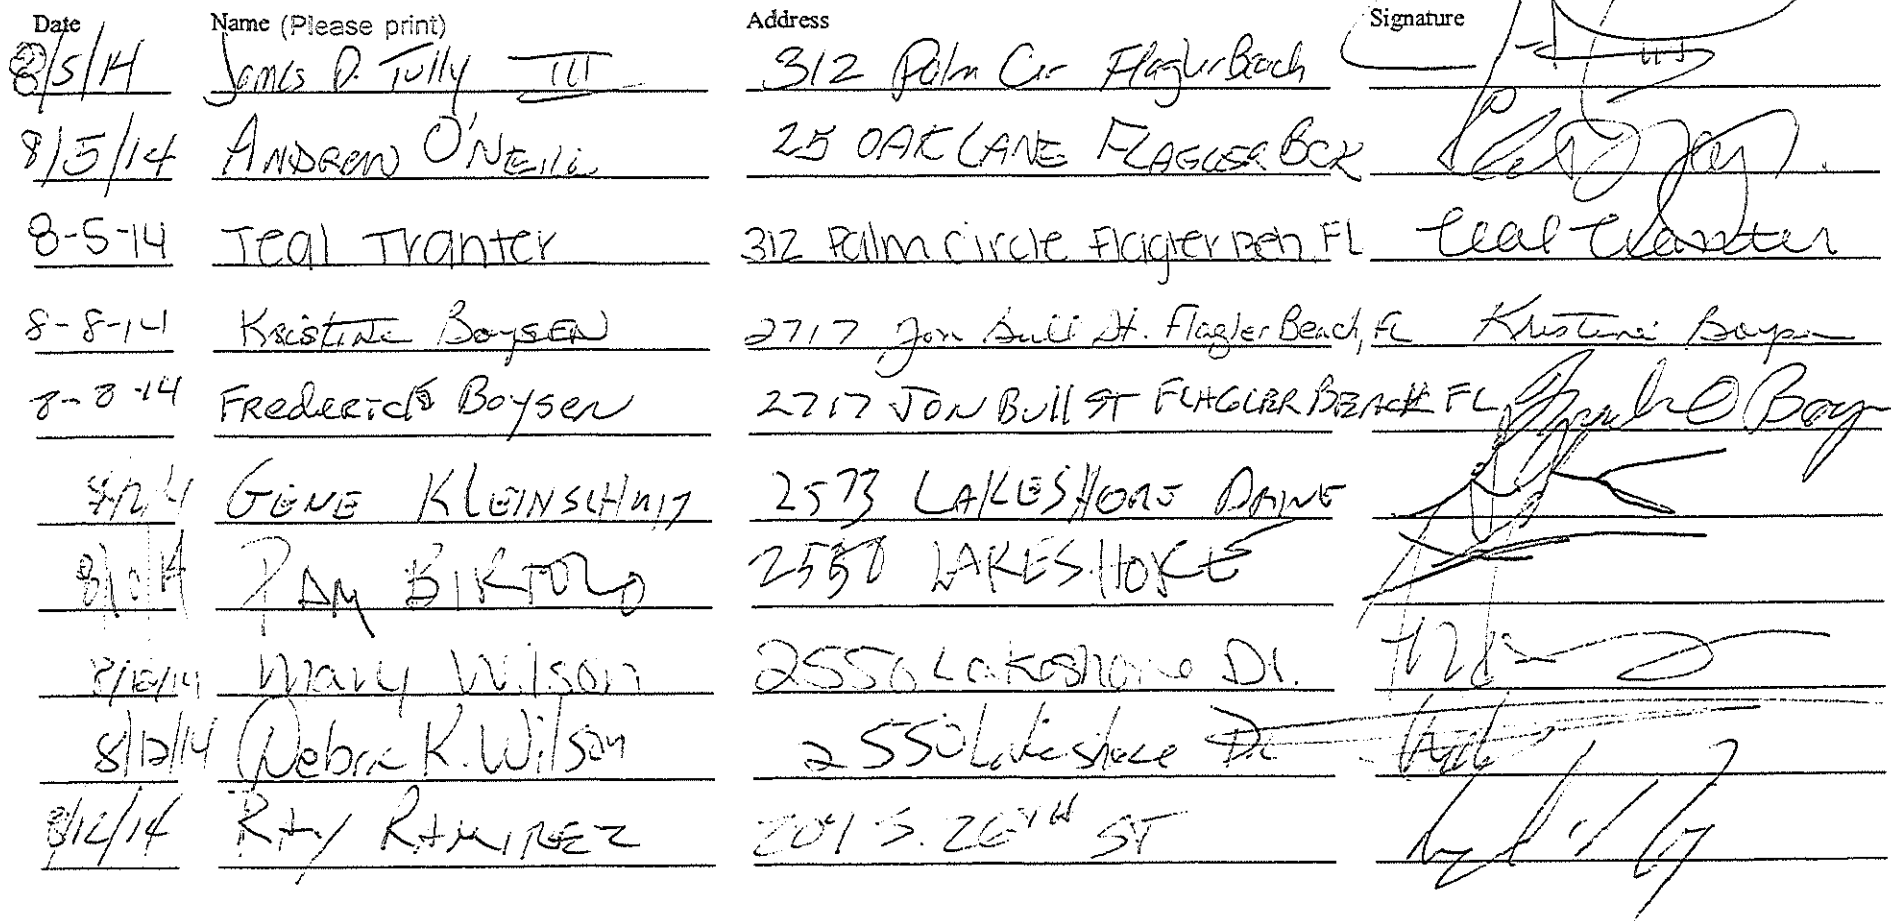 Date Name (Please print) Address Signature
8/5/14 James D. Tully III 312 Palm Cir Flagler Beach
8/5/14 ANDREW O'NEILL 25 OAK LANE FLAGLER BCH
8-5-14 Teal Tranter 312 Palm Circle Flagler Bch, FL Teal Tranter
8-8-14 Kristine Boysen 2717 Jon Bull St. Flagler Beach, FL Kristine Boysen
8-8-14 Frederick Boysen 2717 JON Bull ST FLAGLER BEACH FL
GENE KLEINSCHMIT 2573 LAKESHORE DRIVE
PAM LAKESHORE
8/12/14 Mary Wilson 2550 Lakeshore Dr.
8/12/14 Debra K. Wilson 2550 Lakeshore Dr
8/12/14 RAY RAMIREZ S. 26TH ST